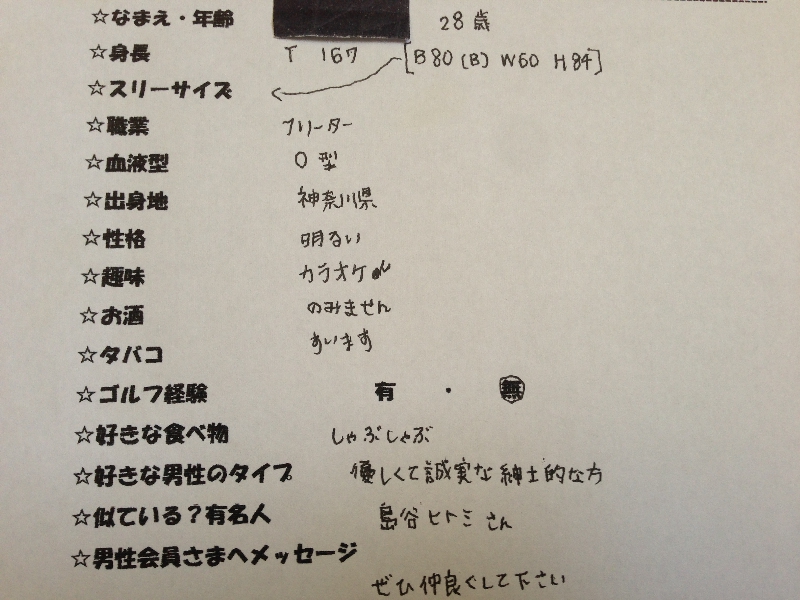 ☆なまえ・年齢 28歳
☆身長 T 167 [B80(B) W60 H84]
☆スリーサイズ
☆職業 フリーター
☆血液型 O型
☆出身地 神奈川県
☆性格 明るい
☆趣味 カラオケ
☆お酒 のみません
☆タバコ すいます
☆ゴルフ経験 有 ・ 無
☆好きな食べ物 しゃぶしゃぶ
☆好きな男性のタイプ 優しくて誠実な紳士的な方
☆似ている？有名人 島谷ヒトミさん
☆男性会員さまへメッセージ
ぜひ仲良くして下さい